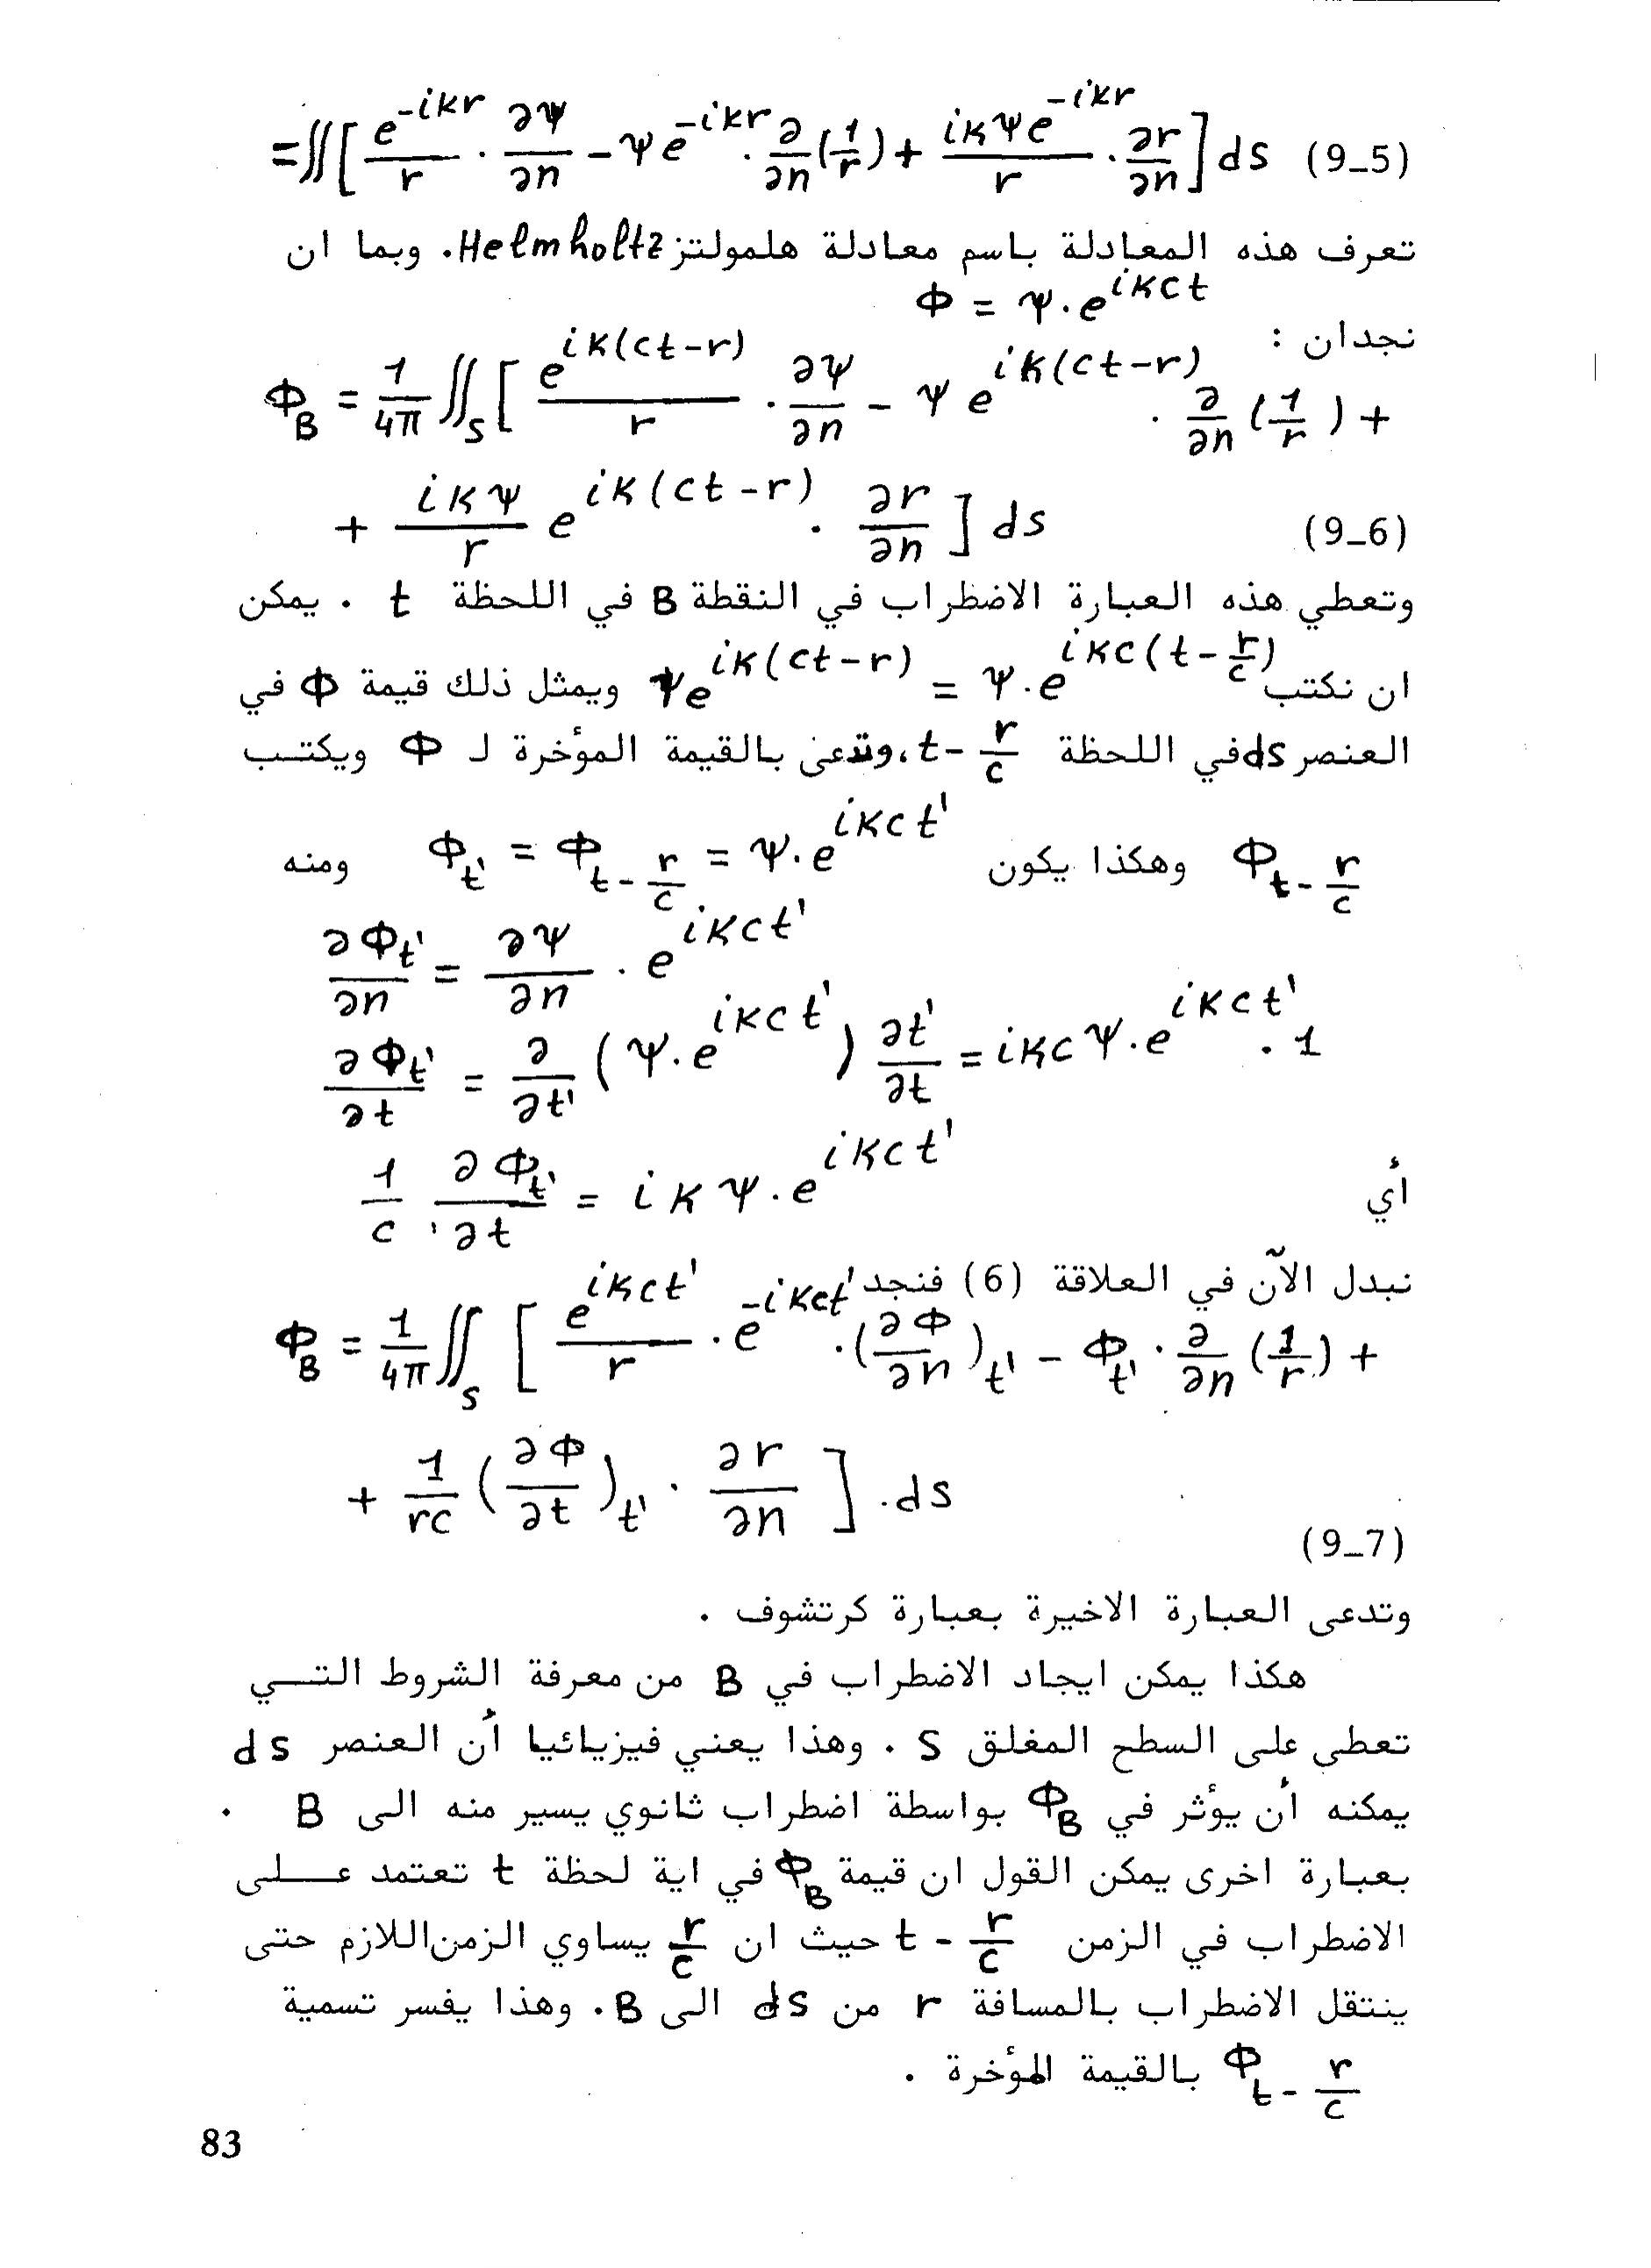 =∬[ e^{-ikr}/r · ∂ψ/∂n − ψ e^{-ikr} · ∂/∂n (1/r) + ikψe^{-ikr}/r · ∂r/∂n ] ds (9_5)
تعرف هذه المعادلة باسم معادلة هلمولتز Helmholtz. وبما ان
Φ = ψ.e^{ikct}
نجدان :
Φ_B = 1/4π ∬_S [ e^{ik(ct-r)}/r · ∂ψ/∂n − ψ e^{ik(ct-r)} · ∂/∂n (1/r) +
+ ikψ/r e^{ik(ct-r)} · ∂r/∂n ] ds (9_6)
وتعطي هذه العبارة الاضطراب في النقطة B في اللحظة t . يمكن
ان نكتب ψe^{ik(ct-r)} = ψ.e^{ikc(t-r/c)} ويمثل ذلك قيمة Φ في
العنصر ds في اللحظة t-r/c، وتدعى بالقيمة المؤخرة لـ Φ ويكتب
Φ_{t-r/c} وهكذا يكون Φ_{t'} = Φ_{t-r/c} = ψ.e^{ikct'} ومنه
∂Φ_{t'}/∂n = ∂ψ/∂n · e^{ikct'}
∂Φ_{t'}/∂t = ∂/∂t' (ψ.e^{ikct'}) ∂t'/∂t = ikcψ.e^{ikct'} . 1
أي 1/c · ∂Φ_{t'}/∂t = ikψ.e^{ikct'}
نبدل الآن في العلاقة (6) فنجد
Φ_B = 1/4π ∬_S [ e^{ikct'}/r · e^{-ikct'} · (∂Φ/∂n)_{t'} − Φ_{t'} · ∂/∂n (1/r) +
+ 1/rc (∂Φ/∂t)_{t'} · ∂r/∂n ] .ds
(9_7)
وتدعى العبارة الاخيرة بعبارة كرتشوف .
هكذا يمكن ايجاد الاضطراب في B من معرفة الشروط التي
تعطى على السطح المغلق S . وهذا يعني فيزيائيا أن العنصر ds
يمكنه أن يؤثر في Φ_B بواسطة اضطراب ثانوي يسير منه الى B .
بعبارة اخرى يمكن القول ان قيمة Φ_B في اية لحظة t تعتمد على
الاضطراب في الزمن t - r/c حيث ان r/c يساوي الزمن اللازم حتى
ينتقل الاضطراب بالمسافة r من ds الى B. وهذا يفسر تسمية
Φ_{t-r/c} بالقيمة المؤخرة .
83